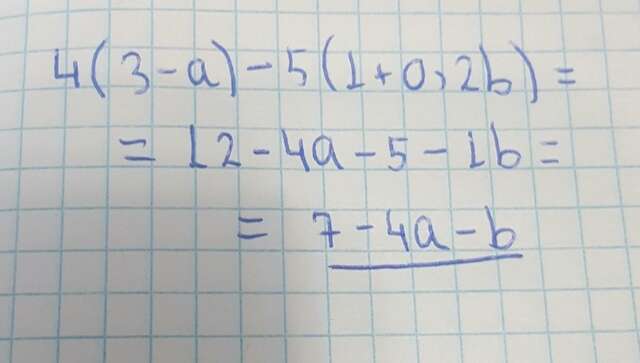 4(3-a)-5(1+0,2b)=
=12-4a-5-1b=
=7-4a-b